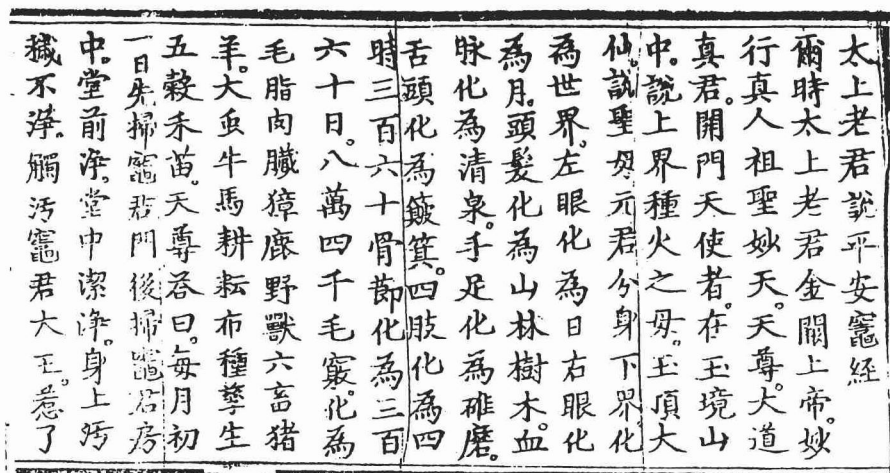 太上老君說平安竈經
爾時太上老君金闕上帝。妙
行真人祖聖妙天。天尊。大道
真君。開門天使者。在玉境山
中。說上界種火之母。玉頂大
仙。說聖母元君分身下界化
為世界。左眼化為日右眼化
為月。頭髮化為山林樹木。血
脉化為清泉。手足化為碓磨。
舌頭化為簸箕。四肢化為四
時三百六十骨節化為三百
六十日。八萬四千毛竅。化為
毛脂肉臟獐鹿野獸六畜猪
羊。大虫牛馬耕耘布種孳生
五穀禾苗。天尊荅曰。每月初
一日先掃竈君門後掃竈君房
中。堂前淨。堂中潔淨。身上汚
穢不淨。觸汚竈君大王。惹了